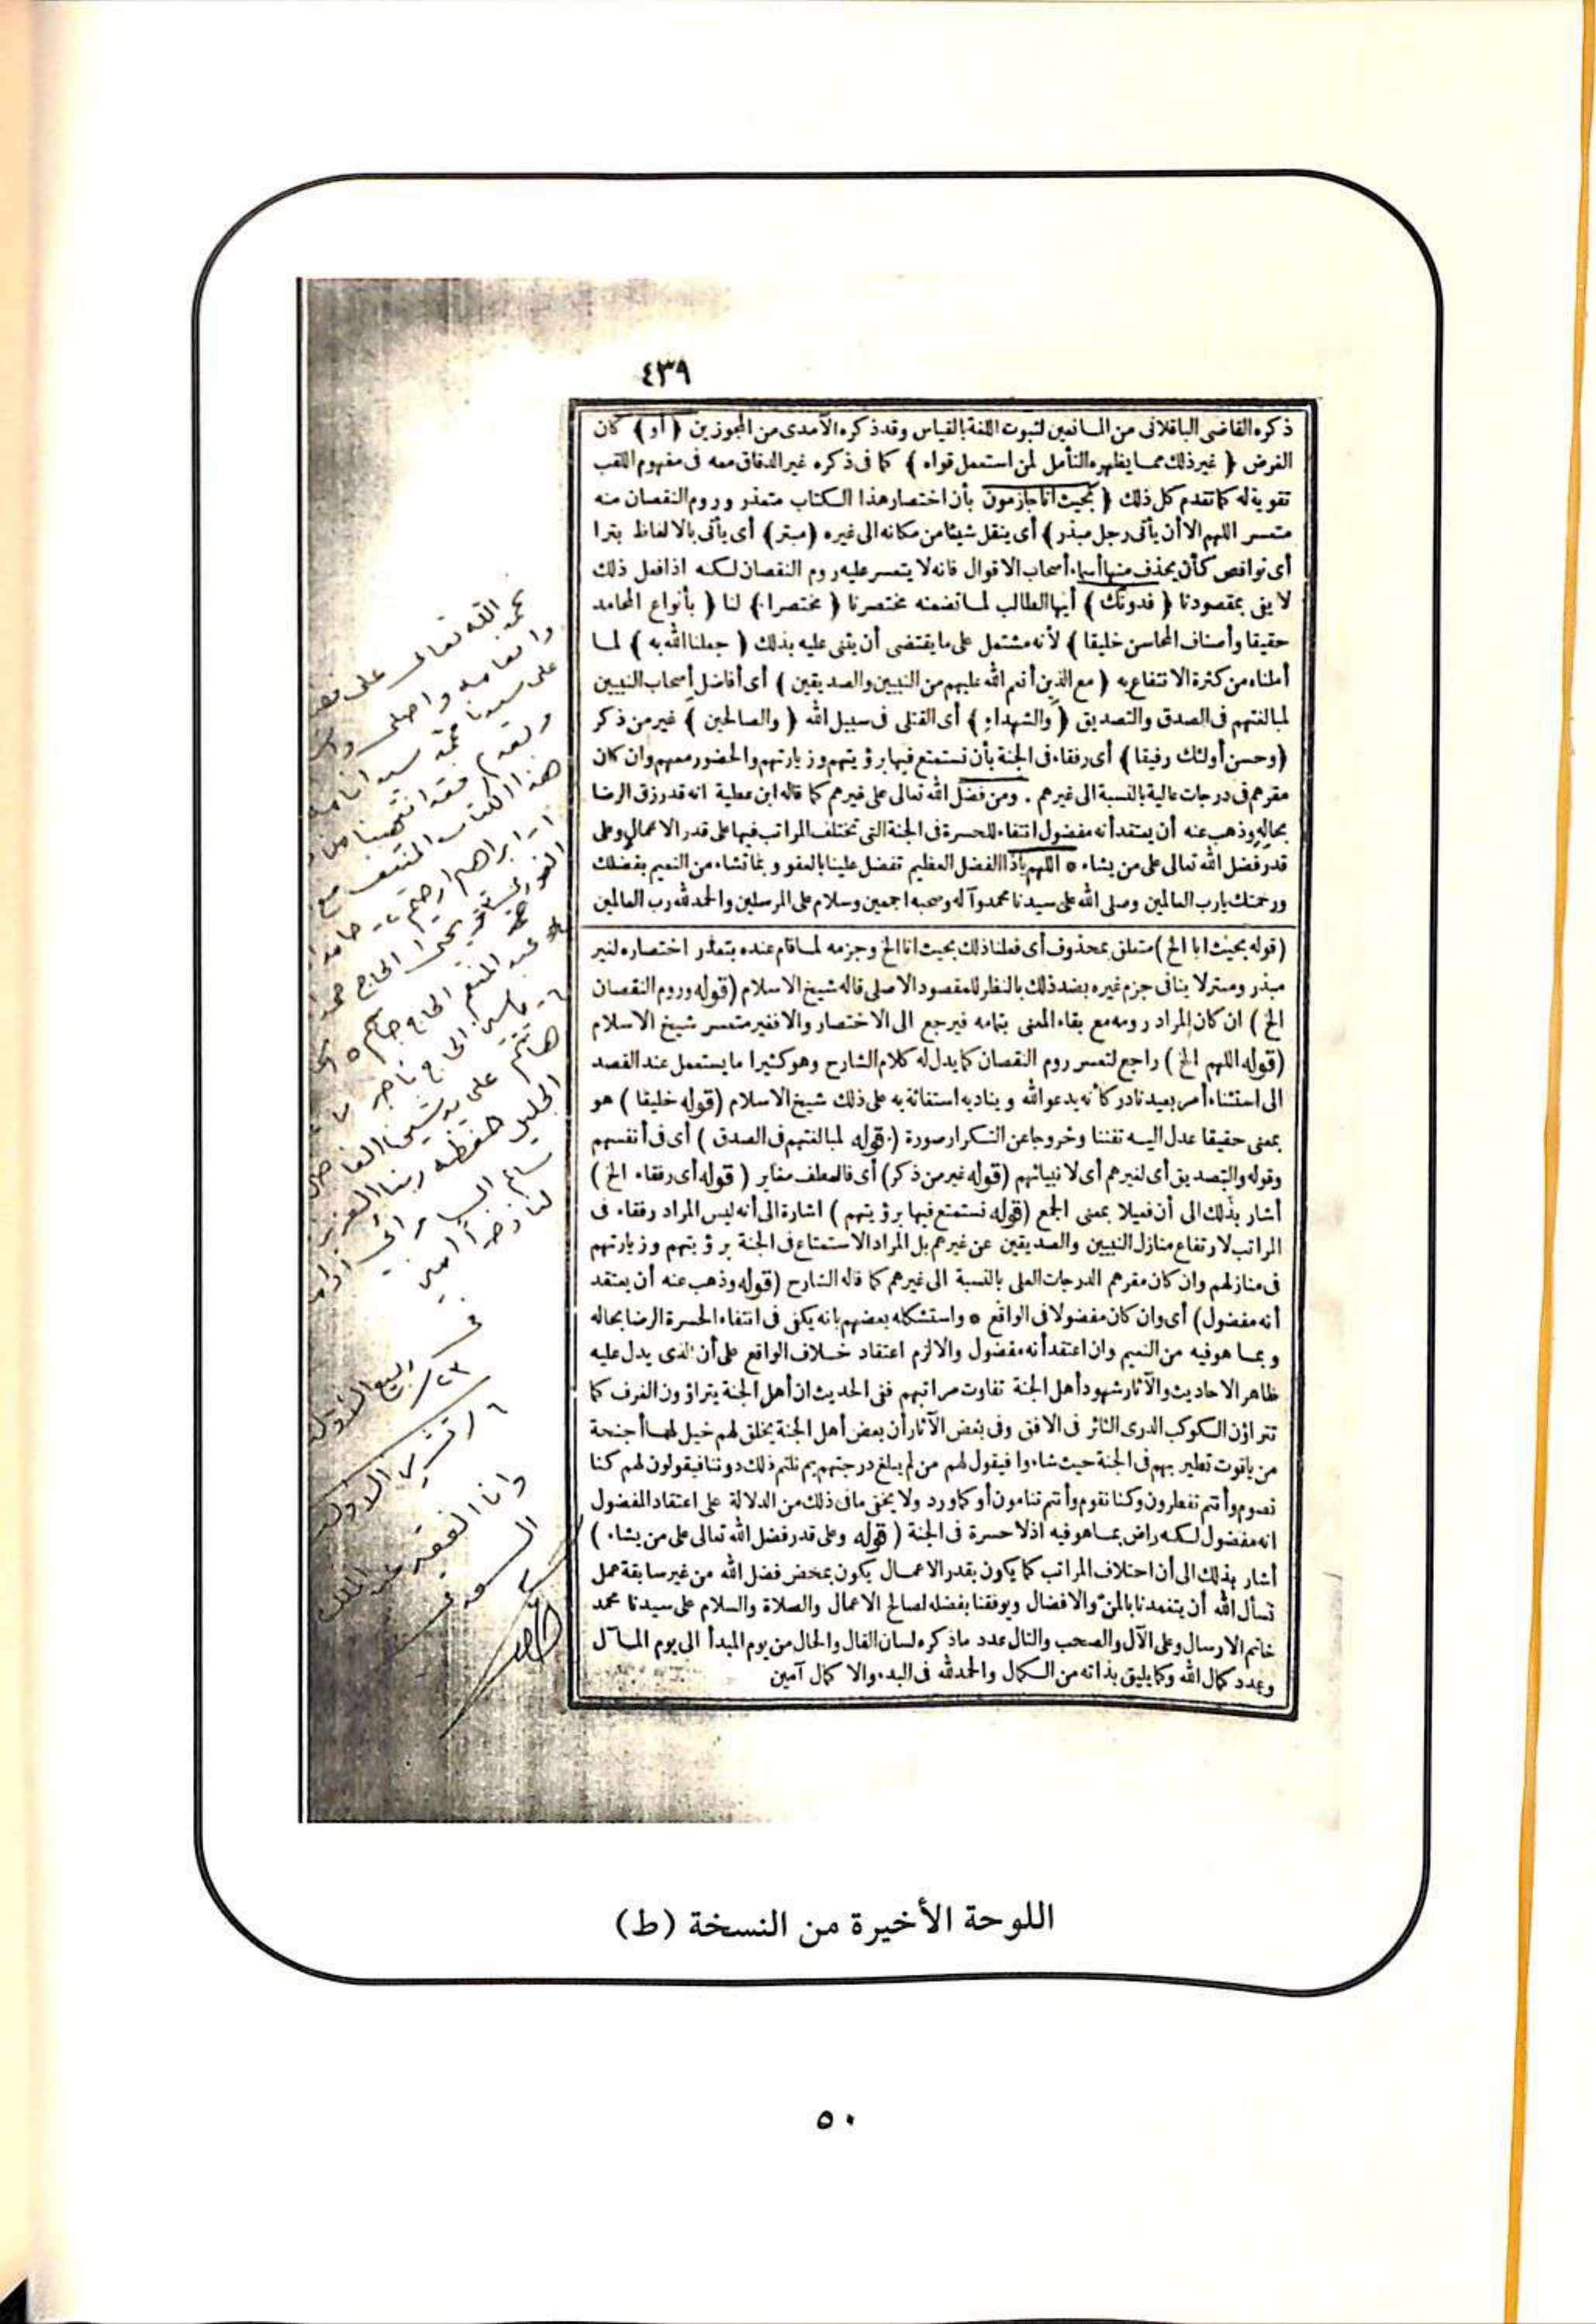 ٤٣٩
ذكره القاضى الباقلانى من المانعين لثبوت اللغة بالقياس وقد ذكره الآمدى من المجوزين ( أو ) كان
الغرض ( غير ذلك مما يظهره التأمل لمن استعمل قواه ) كما فى ذكره غير الدقاق معه فى مفهوم اللقب
تقوية له كما تقدم كل ذلك ( بحيث انا جازمون بأن اختصار هذا الكتاب متعذر وروم النقصان منه
متعسر اللهم الا أن يأتى رجل مبذر ) أى ينقل شيئا من مكانه الى غيره ( مبتر ) أى يأتى بالالفاظ بترا
أى نواقص كأن يحذف منها أسماء أصحاب الاقوال فانه لا يتعسر عليه روم النقصان لكنه اذا فعل ذلك
لا يفى بمقصودنا ( فدونك ) أيها الطالب لما تضمنه مختصرنا ( مختصرا ) لنا ( بأنواع المحامد
حقيقا وأصناف المحاسن خليقا ) لأنه مشتمل على ما يقتضى أن يثنى عليه بذلك ( جعلنا الله به ) لما
أملناه من كثرة الانتفاع به ( مع الذين أنعم الله عليهم من النبيين والصديقين ) أى أفاضل أصحاب النبيين
لمبالغتهم فى الصدق والتصديق ( والشهداء ) أى القتلى فى سبيل الله ( والصالحين ) غير من ذكر
( وحسن أولئك رفيقا ) أى رفقاء فى الجنة بأن نستمتع فيها برؤيتهم وزيارتهم والحضور معهم وان كان
مقرهم فى درجات عالية بالنسبة الى غيرهم . ومن فضل الله تعالى على غيرهم كما قاله ابن عطية انه قد رزق الرضا
بحاله وذهب عنه أن يعتقد أنه مفضول انتفاء للحسرة فى الجنة التى تختلف المراتب فيها على قدر الاعمال وعلى
قدر فضل الله تعالى على من يشاء * اللهم ياذا الفضل العظيم تفضل علينا بالعفو وبما تشاء من النعيم بفضلك
ورحمتك يارب العالمين وصلى الله على سيدنا محمد وآله وصحبه اجمعين وسلام على المرسلين والحمد لله رب العالمين
( قوله بحيث انا الخ ) متعلق بمحذوف أى فعلنا ذلك بحيث انا الخ وجزمه لما قام عنده بتعذر اختصاره لغير
مبذر ومبتر لا ينافى جزم غيره بضد ذلك بالنظر للمقصود الاصلى قاله شيخ الاسلام ( قوله وروم النقصان
الخ ) ان كان المراد رومه مع بقاء المعنى بتمامه فيرجع الى الاختصار والا فغير متعسر شيخ الاسلام
( قوله اللهم الخ ) راجع لتعسر روم النقصان كما يدل له كلام الشارح وهو كثيرا ما يستعمل عند القصد
الى استثناء أمر بعيد نادر كأنه يدعو الله ويناديه استغاثة به على ذلك شيخ الاسلام ( قوله خليقا ) هو
بمعنى حقيقا عدل اليه تفننا وخروجا عن التكرار صورة ( قوله لمبالغتهم فى الصدق ) أى فى أنفسهم
وقوله والتصديق أى لغيرهم أى لانبيائهم ( قوله غير من ذكر ) أى فالعطف مغاير ( قوله أى رفقاء الخ )
أشار بذلك الى أن فعيلا بمعنى الجمع ( قوله نستمتع فيها برؤيتهم ) اشارة الى أنه ليس المراد رفقاء فى
المراتب لارتفاع منازل النبيين والصديقين عن غيرهم بل المراد الاستمتاع فى الجنة برؤيتهم وزيارتهم
فى منازلهم وان كان مقرهم الدرجات العلى بالنسبة الى غيرهم كما قاله الشارح ( قوله وذهب عنه أن يعتقد
أنه مفضول ) أى وان كان مفضولا فى الواقع * واستشكله بعضهم بانه يكفى فى انتفاء الحسرة الرضا بحاله
وبما هو فيه من النعيم وان اعتقد أنه مفضول والا لزم اعتقاد خلاف الواقع على أن الذى يدل عليه
ظاهر الاحاديث والآثار شهود أهل الجنة تفاوت مراتبهم ففى الحديث ان أهل الجنة يتراؤون الغرف كما
تتراؤن الكوكب الدرى الغائر فى الافق وفى بعض الآثار أن بعض أهل الجنة يخلق لهم خيل لها أجنحة
من ياقوت تطير بهم فى الجنة حيث شاءوا فيقول لهم من لم يبلغ درجتهم بم نلتم ذلك دوننا فيقولون لهم كنا
نصوم وأنتم تفطرون وكنا نقوم وأنتم تنامون أو كما ورد ولا يخفى ما فى ذلك من الدلالة على اعتقاد المفضول
انه مفضول لكنه راض بما هو فيه اذ لا حسرة فى الجنة ( قوله وعلى قدر فضل الله تعالى على من يشاء )
أشار بذلك الى أن اختلاف المراتب كما يكون بقدر الاعمال يكون بمحض فضل الله من غير سابقة عمل
نسأل الله أن يتغمدنا بالمن والافضال ويوفقنا بفضله لصالح الاعمال والصلاة والسلام على سيدنا محمد
خاتم الارسال وعلى الآل والصحب والتال عدد ما ذكره لسان القال والحال من يوم المبدأ الى يوم المآل
وعدد كمال الله وكما يليق بذاته من الكمال والحمد لله فى البدء والاكمال آمين
بحمد الله تعالى على
وانعامه واصلى
على سيدنا محمد سيد
وبعد فقد انتهينا من
هذا الكتاب المنتفع مع
ابراهيم
يحيى الحاج
عبد المنعم الحاج جاسم
ياسين الحاج ناجي
هاشم على يد شيخنا الفاضل
الجليل حفظه ربنا
السامرائي
آمين
في
٢٣ ربيع الأول
٦ تشرين الاول
وانا الفقير عبد الملك
السعدي
اللوحة الأخيرة من النسخة (ط)
٥٠